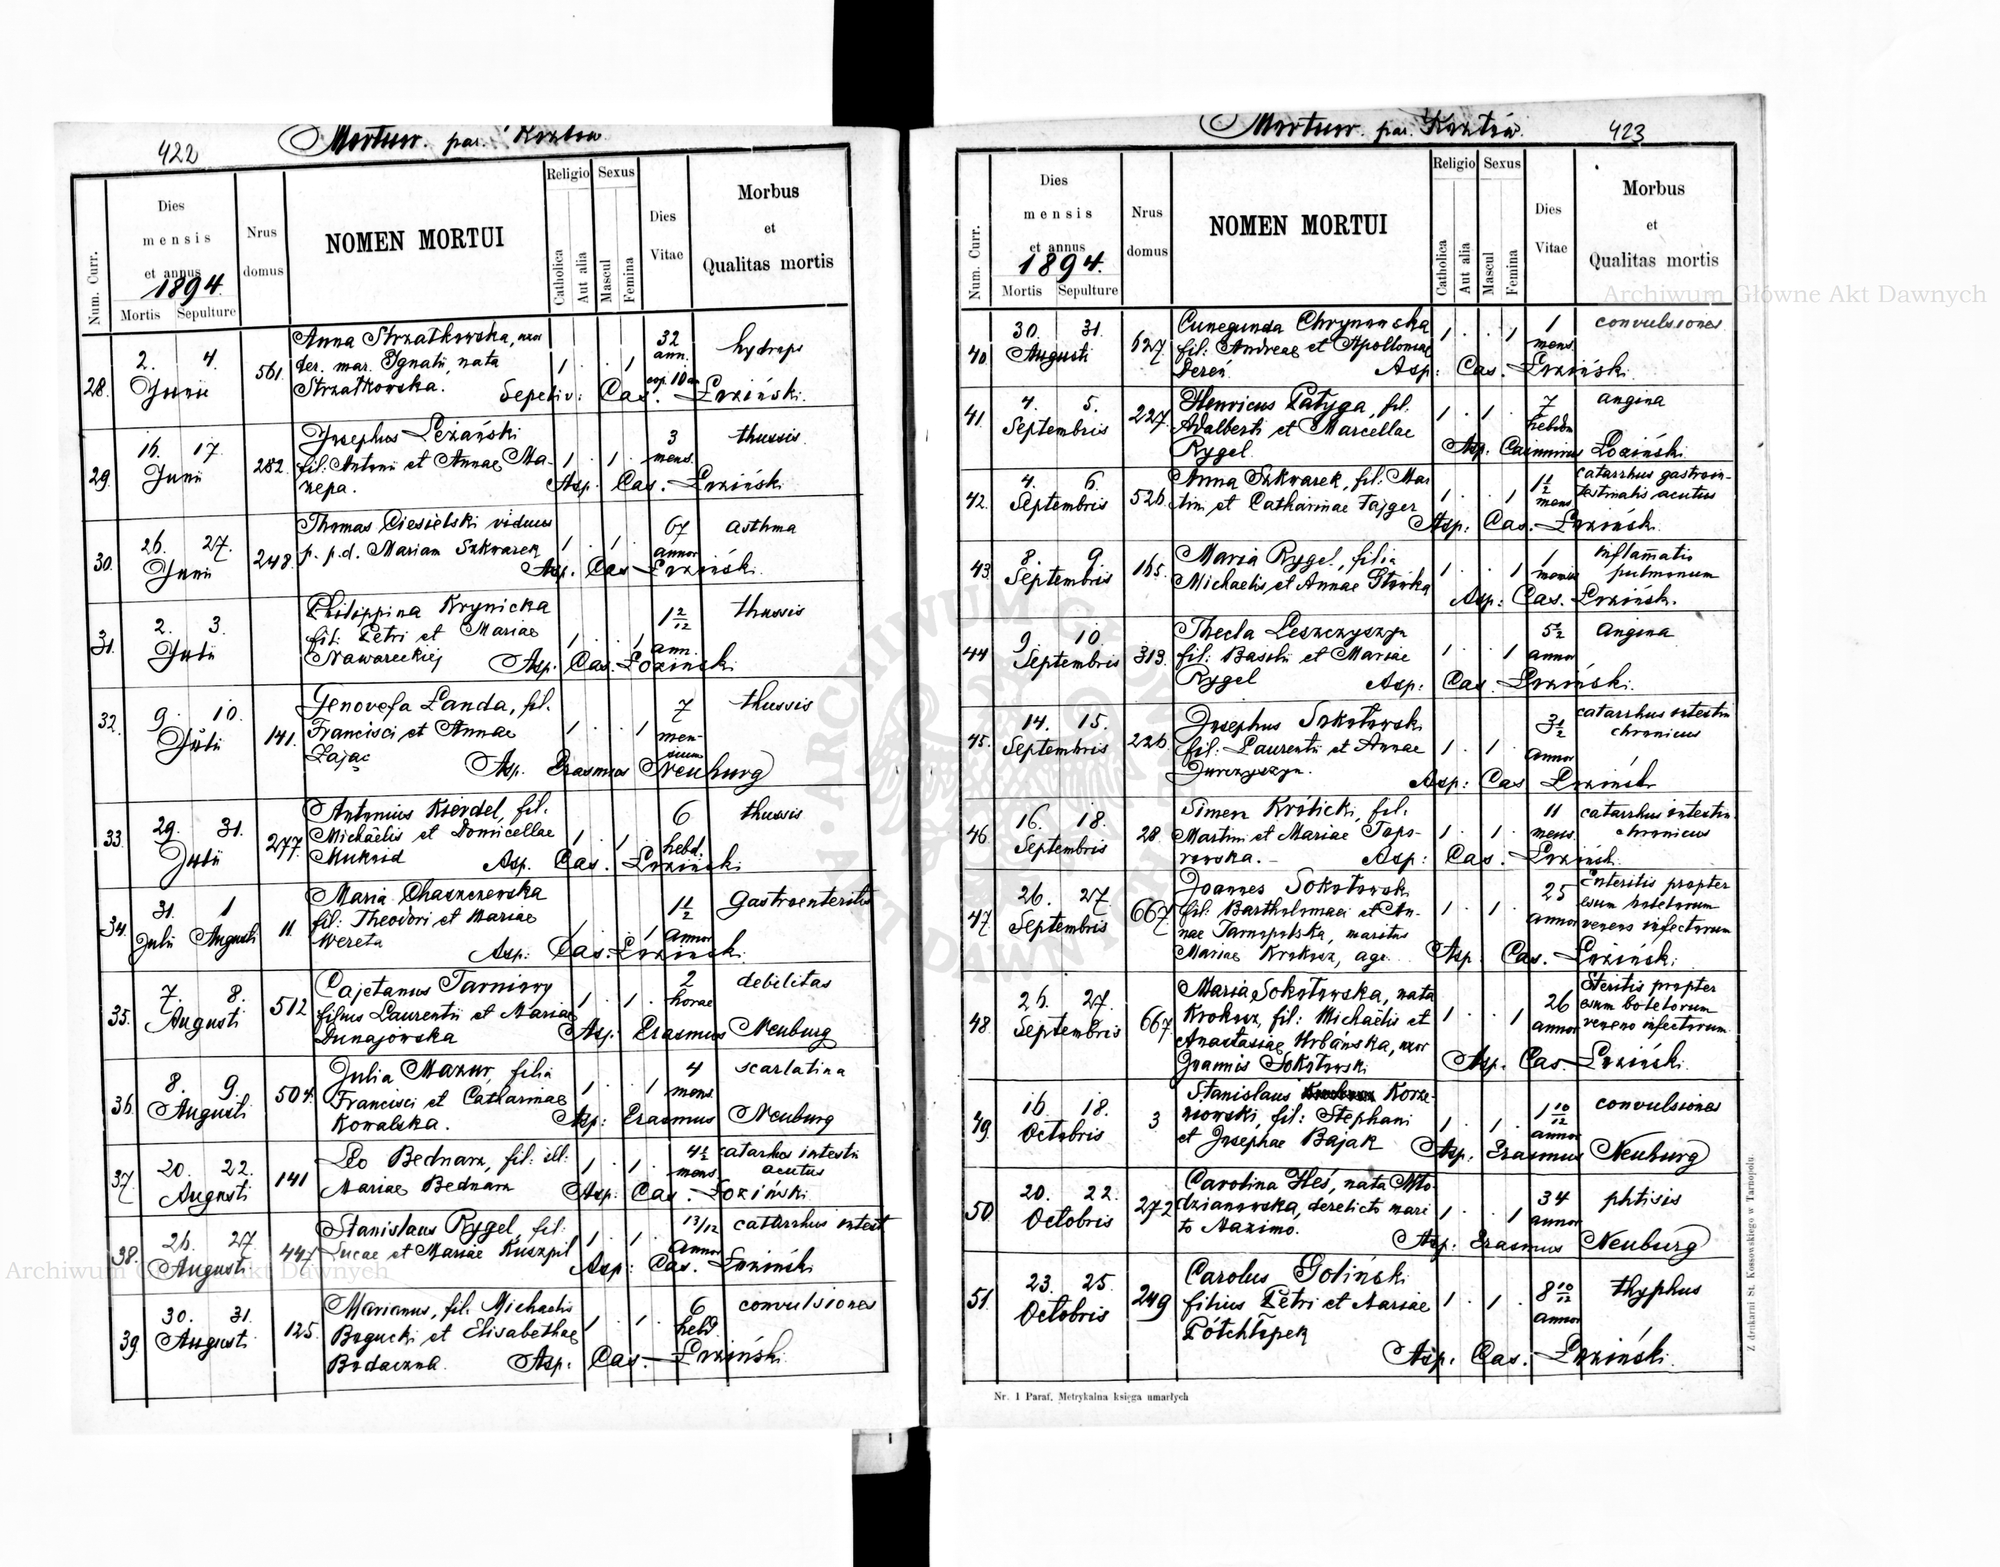 422
Mortuor. par. Kozłow
Num. Curr.
Dies
mensis
et annus
1894.
Mortis Sepulture
Nrus
domus
NOMEN MORTUI
Religio
Catholica
Aut alia
Sexus
Mascul
Femina
Dies
Vitae
Morbus
et
Qualitas mortis
28. 2. 4. Junii 561.
Anna Strzałkowska, uxor
der. mar. Ignatii, nata
Strzałkowska.
1 1
32
ann.
hydrops
Sepeliv: Cas. Łoziński.
29. 16. 17. Junii 282.
Josephus Leżański
fil. Antoni et Annae Ma-
zepa.
1 . 1 .
3
mens.
thussis
Asp. Cas. Łoziński
30. 26. 27. Junii 248.
Thomas Ciesielski viduus
p. p.d. Mariam Szkwarek
1 . 1 .
67
annor
asthma
Asp. Cas Łoziński.
31. 2. 3. Julii
Philippina Krynicka
fil: Petri et Mariae
Nawareckiej
1 . . 1
1 2/12
ann.
thussis
Asp. Cas. Łoziński.
32. 9. 10. Julii 141.
Genovefa Landa, fil.
Francisci et Annae
Zając
1 . . 1
7
men-
sium
thussis
Asp. Erasmus Neuburg
33. 29. 31. Julii 277.
Antonius Kierdel, fil.
Michaëlis et Domicellae
Mukoid
1 . 1 .
6
hebd.
thussis
Asp. Cas. Łoziński
34. 31. Julii 1 Augusti 11.
Maria Chaszczewska
fil: Theodori et Mariae
Wereta
1 . . 1
1 1/2
annor
Gastroenteritis
Asp: Cas. Łoziński.
35. 7. 8. Augusti 512
Cajetanus Tarnowy
filius Laurentii et Mariae
Dunajowska
1 . 1 .
2
horae
debilitas
Asp: Erasmus Neuburg
36. 8. 9. Augusti 504.
Julia Mazur, filia
Francisci et Catharinae
Kowalska.
1 . . 1
4
mens.
scarlatina
Asp: Erasmus Neuburg
37. 20. 22. Augusti 141
Leo Bednarz, fil: ill:
Mariae Bednarz
1 . 1 .
4 1/2
mens.
catarhus intestin
acutus
Asp: Cas. Łoziński.
38. 26. 27. Augusti 447
Stanislaus Rygel, fil:
Lucae et Mariae Kuszpil
1 . 1 .
13/12
Annor
catarrhus intest
Asp: Cas. Łoziński
39. 30. 31. Augusti 125.
Marianus, fil. Michaelis
Bogucki et Elisabethae
Bodaczna.
1 . 1 .
6
hebd.
convulsiones
Asp: Cas. Łoziński.
Mortuor. par. Kozłów.
423
Num. Curr.
Dies
mensis
et annus
1894.
Mortis Sepulture
Nrus
domus
NOMEN MORTUI
Religio
Catholica
Aut alia
Sexus
Mascul
Femina
Dies
Vitae
Morbus
et
Qualitas mortis
40. 30. 31. Augusti 627.
Cunegunda Chrynowska
fil: Andreae et Apolloniae
Dereń.
1 . . 1
1
mens.
convulsiones
Asp: Cas. Łoziński.
41. 4. 5. Septembris 227.
Henricus Patyga, fil.
Adalberti et Marcellae
Rygel.
1 . 1 .
7
hebdm
angina
Asp. Casimirus Łoziński.
42. 4. 6. Septembris 526.
Anna Szkwarek, fil. Mar
tini et Catharinae Tajger
1 . . 1
1 1/2
mens
catarrhus gastroin-
testinalis acutus
Asp: Cas. Łoziński.
43. 8. 9. Septembris 165.
Maria Rygel, filia
Michaelis et Annae Głowka
1 . . 1
1
mensis
inflam̄atio
pulmonum
Asp: Cas. Łozińsk.
44 9. 10. Septembris 313.
Thecla Leszczyszyn
fil: Basilii et Mariae
Rygel
1 . . 1
5 1/2
annor
angina
Asp: Cas. Łoziński.
45. 14. 15. Septembris 226.
Josephus Sokołowski
fil: Laurentii et Annae
Jurczyszyn.
1 . 1 .
3 1/2
annor
catarrhus intestin
chronicus
Asp: Cas Łoziński
46. 16. 18. Septembris 28
Simeon Królicki, fil.
Martini et Mariae Topo-
rowska. -
1 . 1 .
11
mens.
catarrhus intestin.
chronicus
Asp: Cas. Łoziński.
47. 26. 27. Septembris 667.
Joannes Sokołowsk
fil: Bartholomaei et An-
nae Tarnopolska, maritus
Mariae Krokosz, agr.
1 . 1 .
25
annor
Enteritis propter
esum boletorum
veneno infectorum
Asp. Cas. Łoziński.
48. 26. 27. Septembris 667.
Maria Sokołowska, nata
Krokosz, fil: Michaëlis et
Anastasiae Urbańska, uxor
Joannis Sokołowski
1 . . 1
26
annor
Eteritis propter
esum boletorum
veneno infectorum
Asp. Cas. Łoziński.
49. 16. 18. Octobris 3
Stanislaus Korze-
niowski, fil: Stephani
et Josephae Bajak
1 . 1 .
1 10/12
annor
convulsiones
Asp: Erasmus Neuburg
50. 20. 22. Octobris 272
Carolina Heś, nata Mło-
dzianowska, derelicto mari
to Maximo.
1 . . 1
34
annor
phtisis
Asp: Erasmus Neuburg
51. 23. 25. Octobris 249
Carolus Goliński
filius Petri et Mariae
Półchłopek
1 . 1 .
8 10/12
annor
thyphus
Asp. Cas. Łoziński.
Nr. 1 Paraf. Metrykalna księga umarłych
Z drukarni St. Kossowskiego w Tarnopolu.
Archiwum Główne Akt Dawnych
Archiwum Główne Akt Dawnych
ARCHIWUM GŁÓWNE AKT DAWNYCH